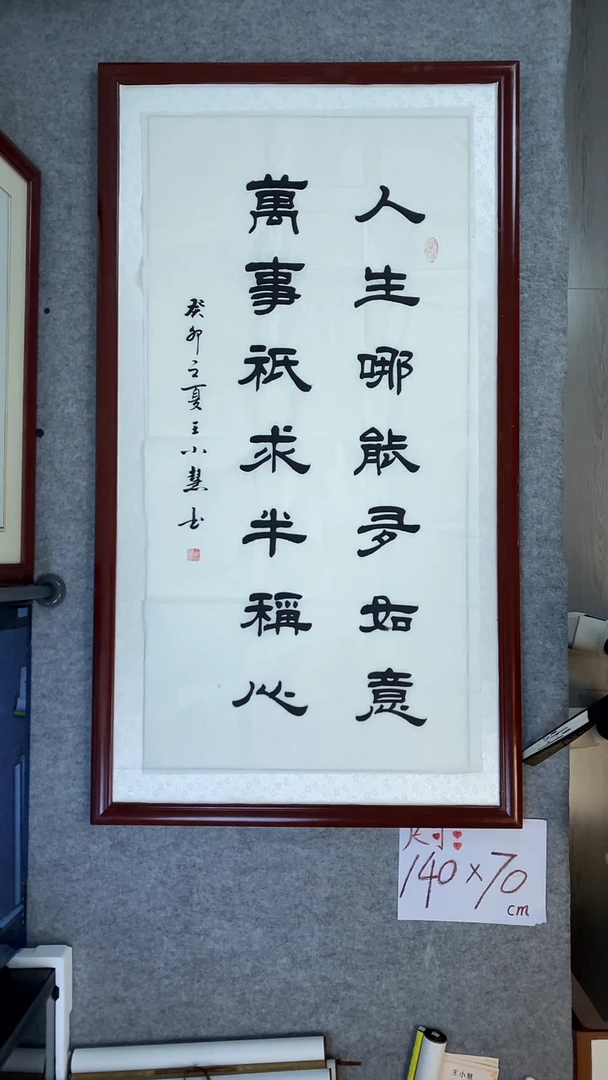 人生哪能多如意
萬事祇求半稱心
癸卯之夏王小慧书
尺寸:
140×70
cm
王小慧